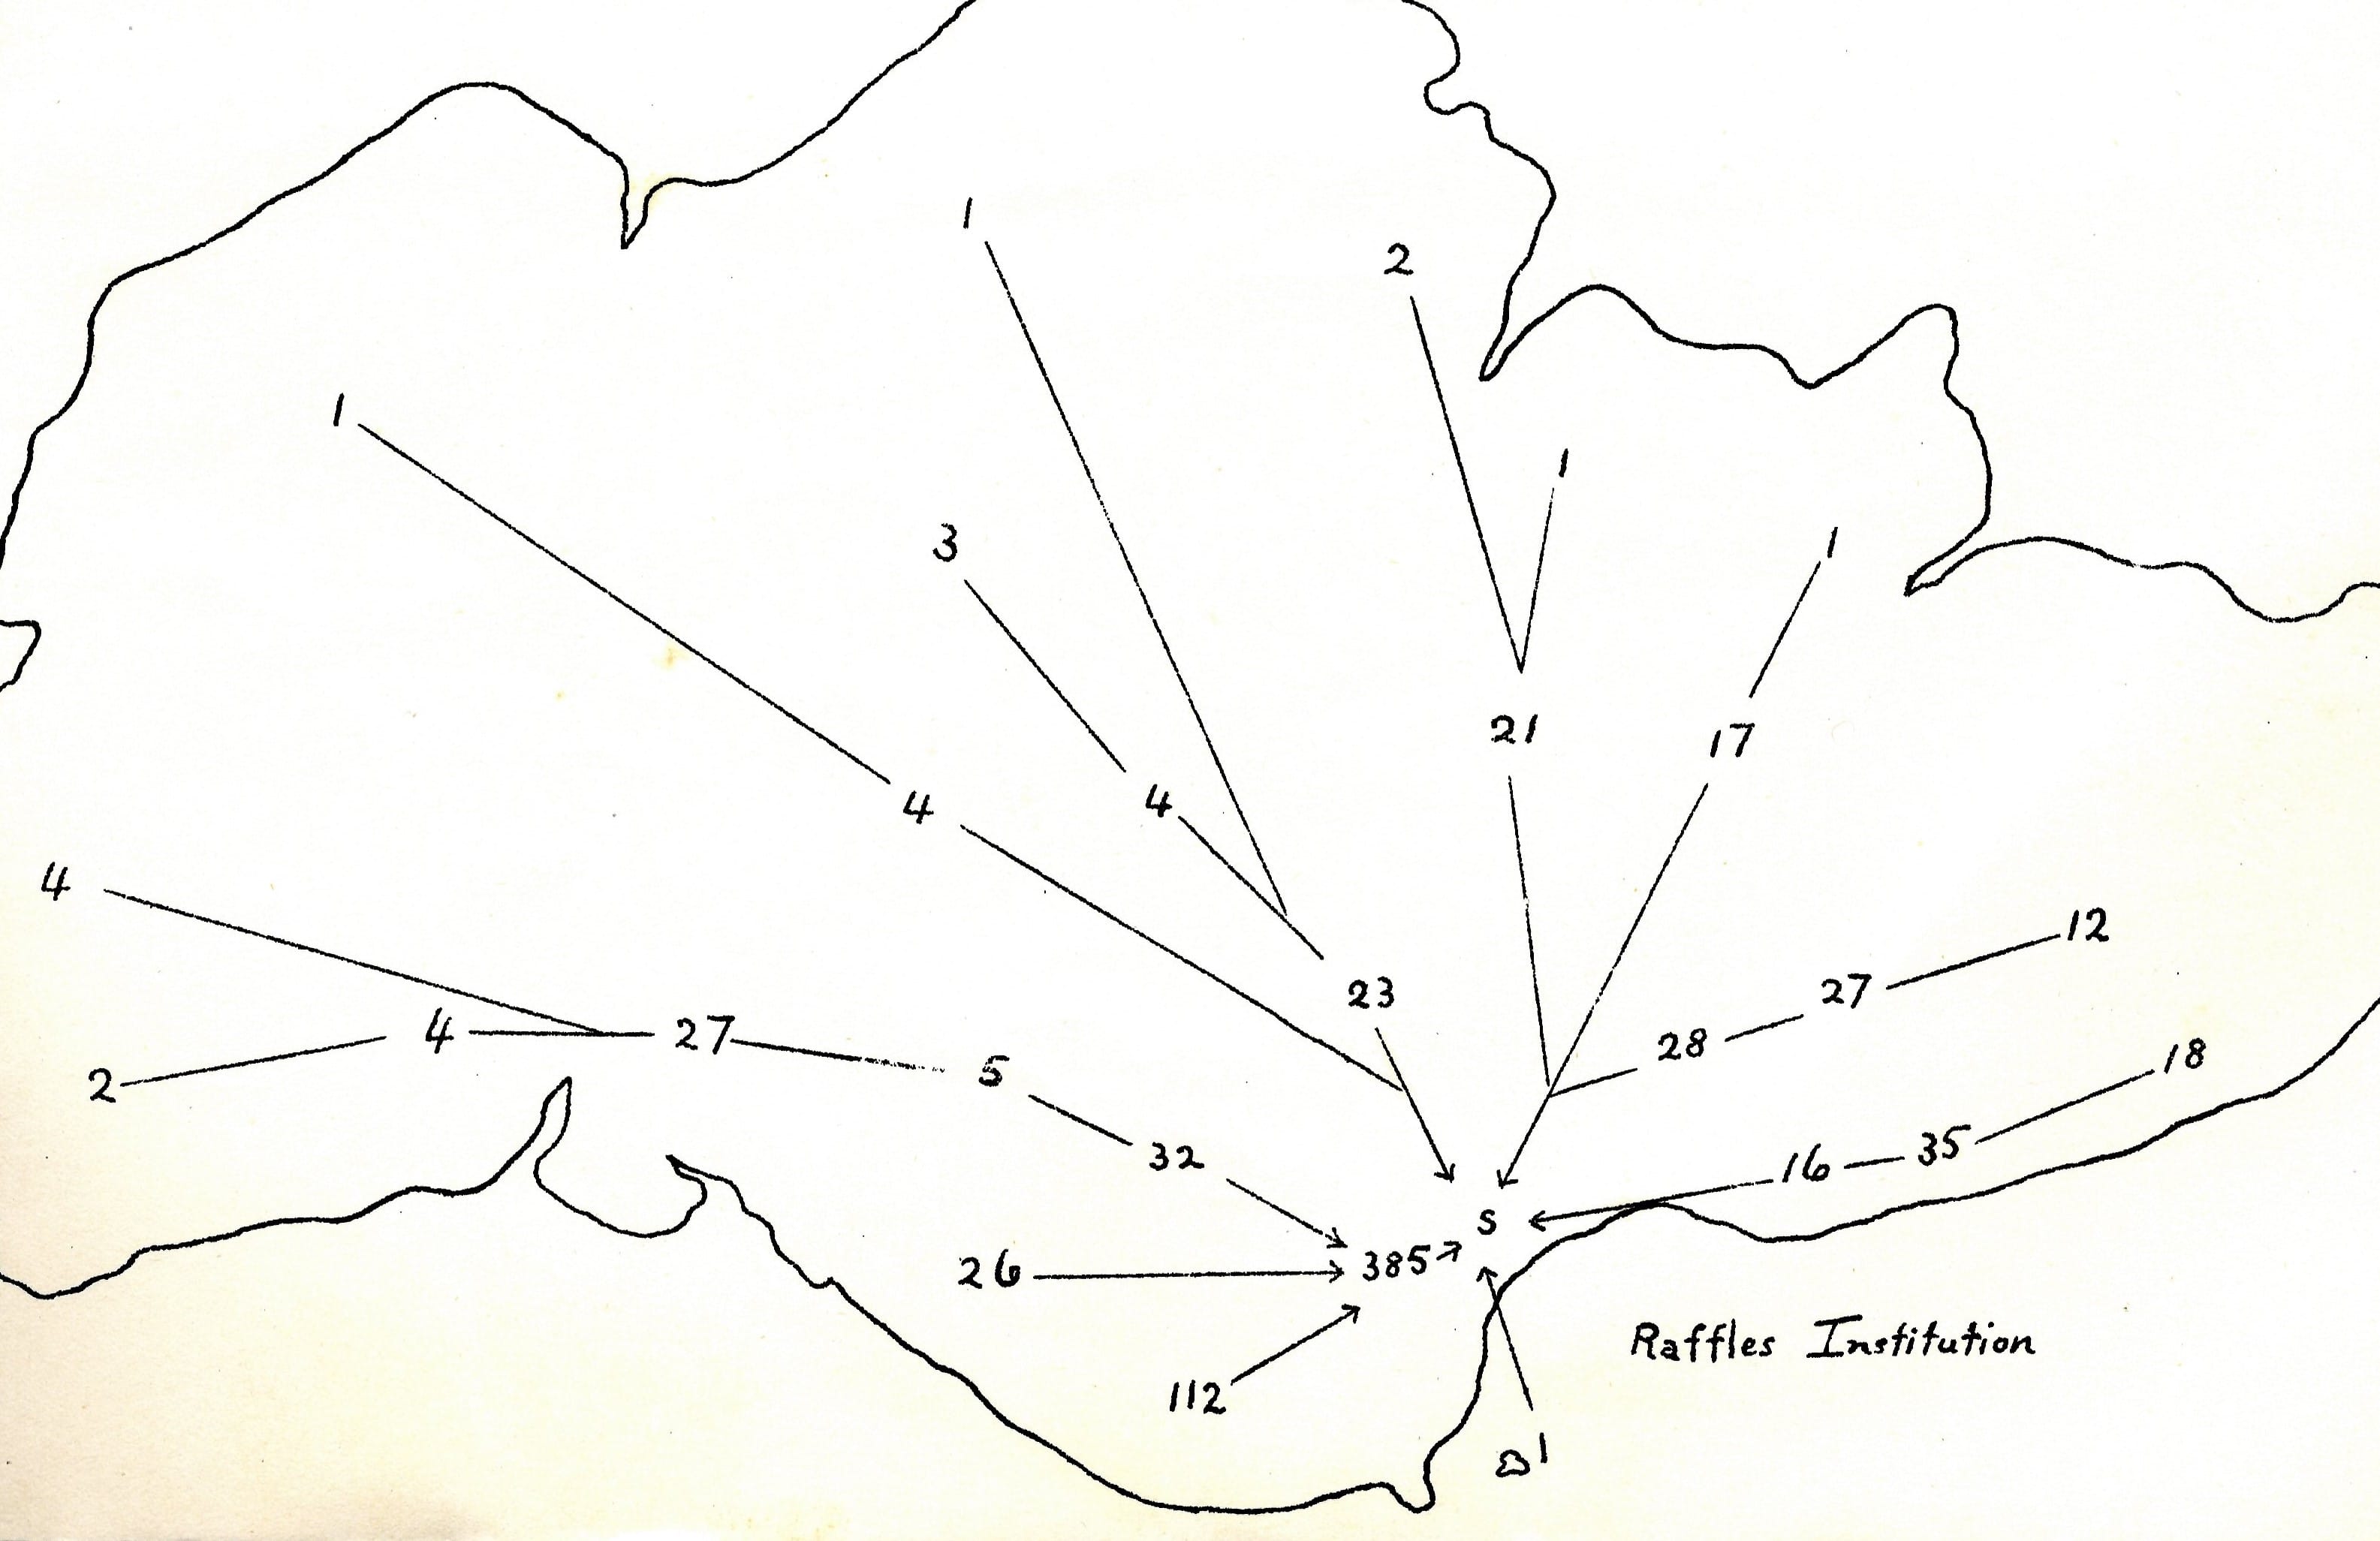 1
2
1
1
1
3
21
17
4
4
4
12
23
27
4
27
28
2
5
18
32
16
35
S
385
26
Raffles Institution
112
1